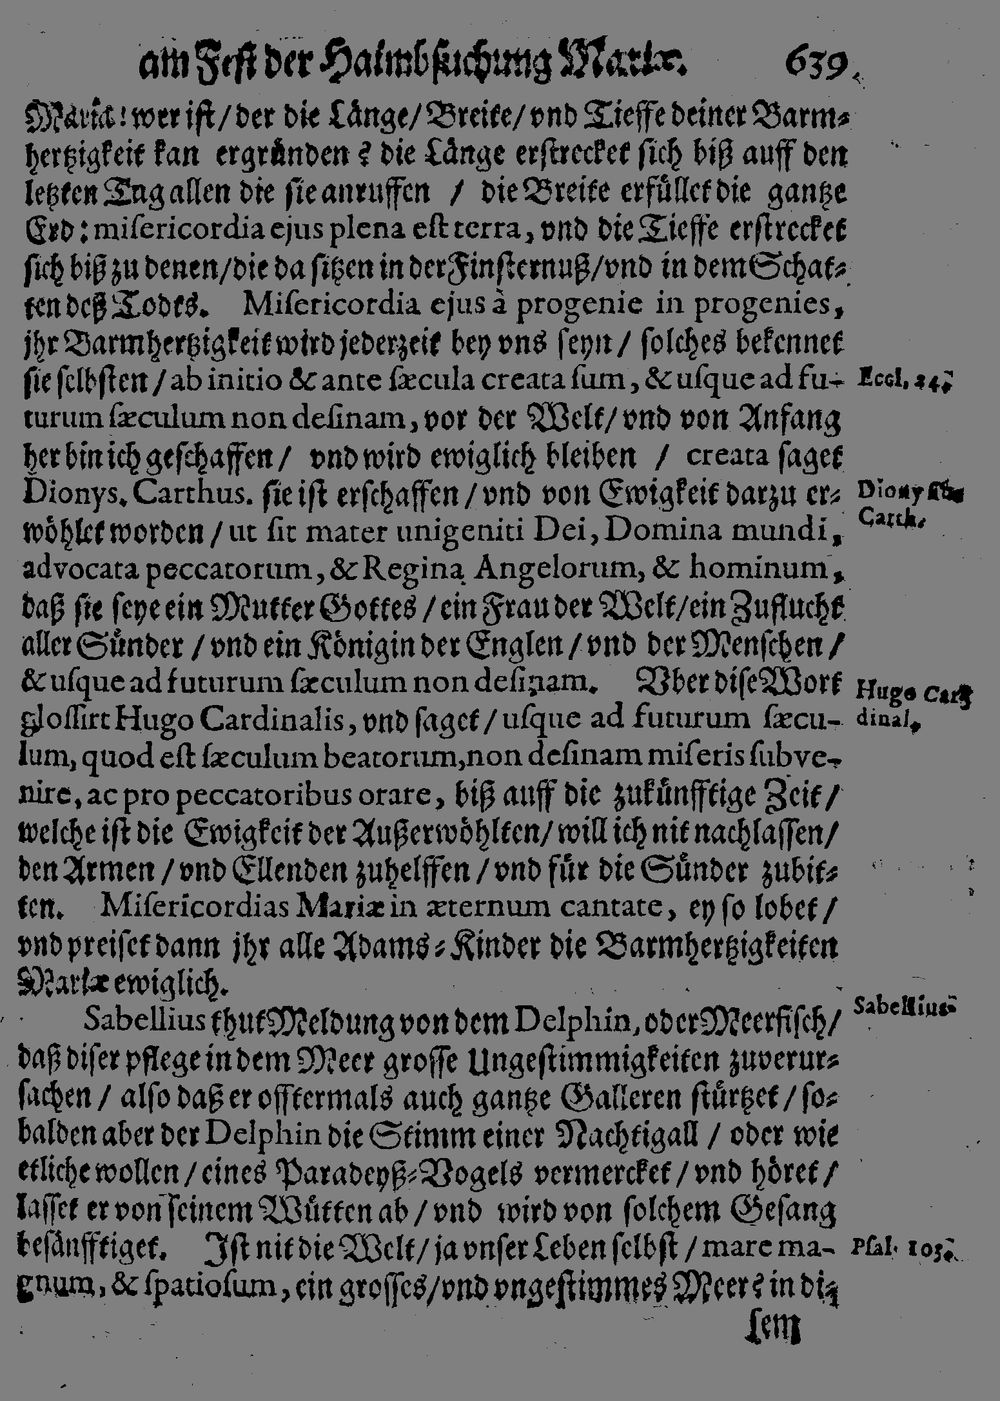 am Fest der Haimbsuchung Mariæ. 639.
Maria! wer ist / der die Länge / Breite / vnd Tieffe deiner Barm-
hertzigkeit kan ergründen? die Länge erstrecket sich biß auff den
letzten Tag allen die sie anruffen / die Breite erfüllet die gantze
Erd: misericordia ejus plena est terra, vnd die Tieffe erstrecket
sich biß zu denen / die da sitzen in der Finsternuß / vnd in dem Schat-
ten deß Todts. Misericordia ejus à progenie in progenies,
jhr Barmhertzigkeit wird jederzeit bey vns seyn / solches bekennet
sie selbsten / ab initio & ante sæcula creata sum, & usque ad fu- Eccl. 24.
turum sæculum non desinam, vor der Welt / vnd von Anfang
her bin ich geschaffen / vnd wird ewiglich bleiben / creata saget
Dionys. Carthus. sie ist erschaffen / vnd von Ewigkeit darzu er- Dionysius
wöhlet worden / ut sit mater unigeniti Dei, Domina mundi, Carth.
advocata peccatorum, & Regina Angelorum, & hominum,
daß sie seye ein Mutter Gottes / ein Frau der Welt / ein Zuflucht
aller Sünder / vnd ein Königin der Englen / vnd der Menschen /
& usque ad futurum sæculum non desinam. Vber dise Wort Hugo Car-
glossirt Hugo Cardinalis, vnd saget / usque ad futurum sæcu- dinal.
lum, quod est sæculum beatorum, non desinam miseris subve-
nire, ac pro peccatoribus orare, biß auff die zukünfftige Zeit /
welche ist die Ewigkeit der Außerwöhlten / will ich nit nachlassen /
den Armen / vnd Ellenden zuhelffen / vnd für die Sünder zubit-
ten. Misericordias Mariæ in æternum cantate, ey so lobet /
vnd preiset dann jhr alle Adams-Kinder die Barmhertzigkeiten
Mariæ ewiglich.
Sabellius thut Meldung von dem Delphin, oder Meerfisch / Sabellius
daß diser pflege in dem Meer grosse Ungestimmigkeiten zuverur-
sachen / also daß er offtermals auch gantze Galleren stürtzet / so-
balden aber der Delphin die Stimm einer Nachtigall / oder wie
etliche wollen / eines Paradeyß-Vogels vermercket / vnd höret /
lasset er von seinem Wütten ab / vnd wird von solchem Gesang
besänfftiget. Ist nit die Welt / ja vnser Leben selbst / mare ma- Psal. 103.
gnum, & spatiosum, ein grosses / vnd vngestimmes Meer? in di-
sem